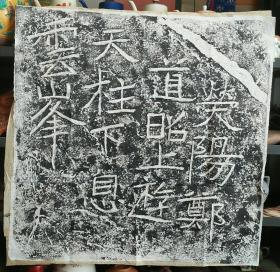 荥陽鄭
道昭上遊
天柱下息
雲峯